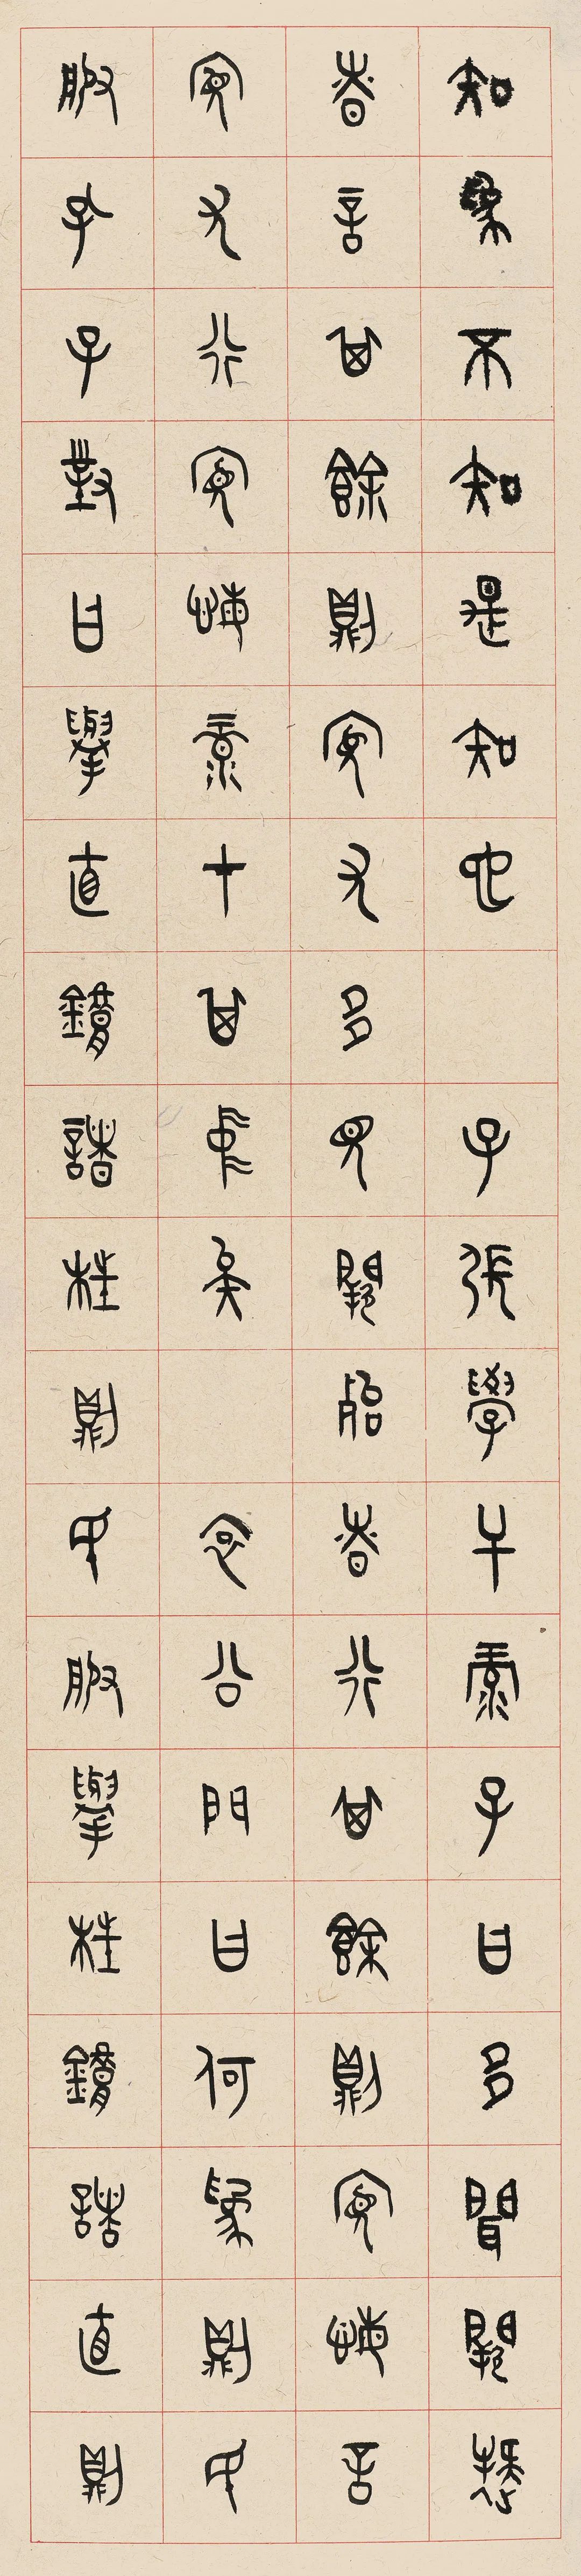 知為不知是知也 子張學干祿子曰多聞闕疑
慎言其餘則寡尤多見闕殆慎行其餘則寡悔言
寡尤行寡悔祿在其中矣 哀公問曰何為則民
服孔子對曰舉直錯諸枉則民服舉枉錯諸直則